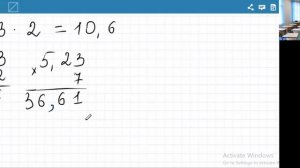 3 · 2 = 10,6
3 × 5,23
2 7
36,61
Activate Windows
Go to Settings to activate Windows.